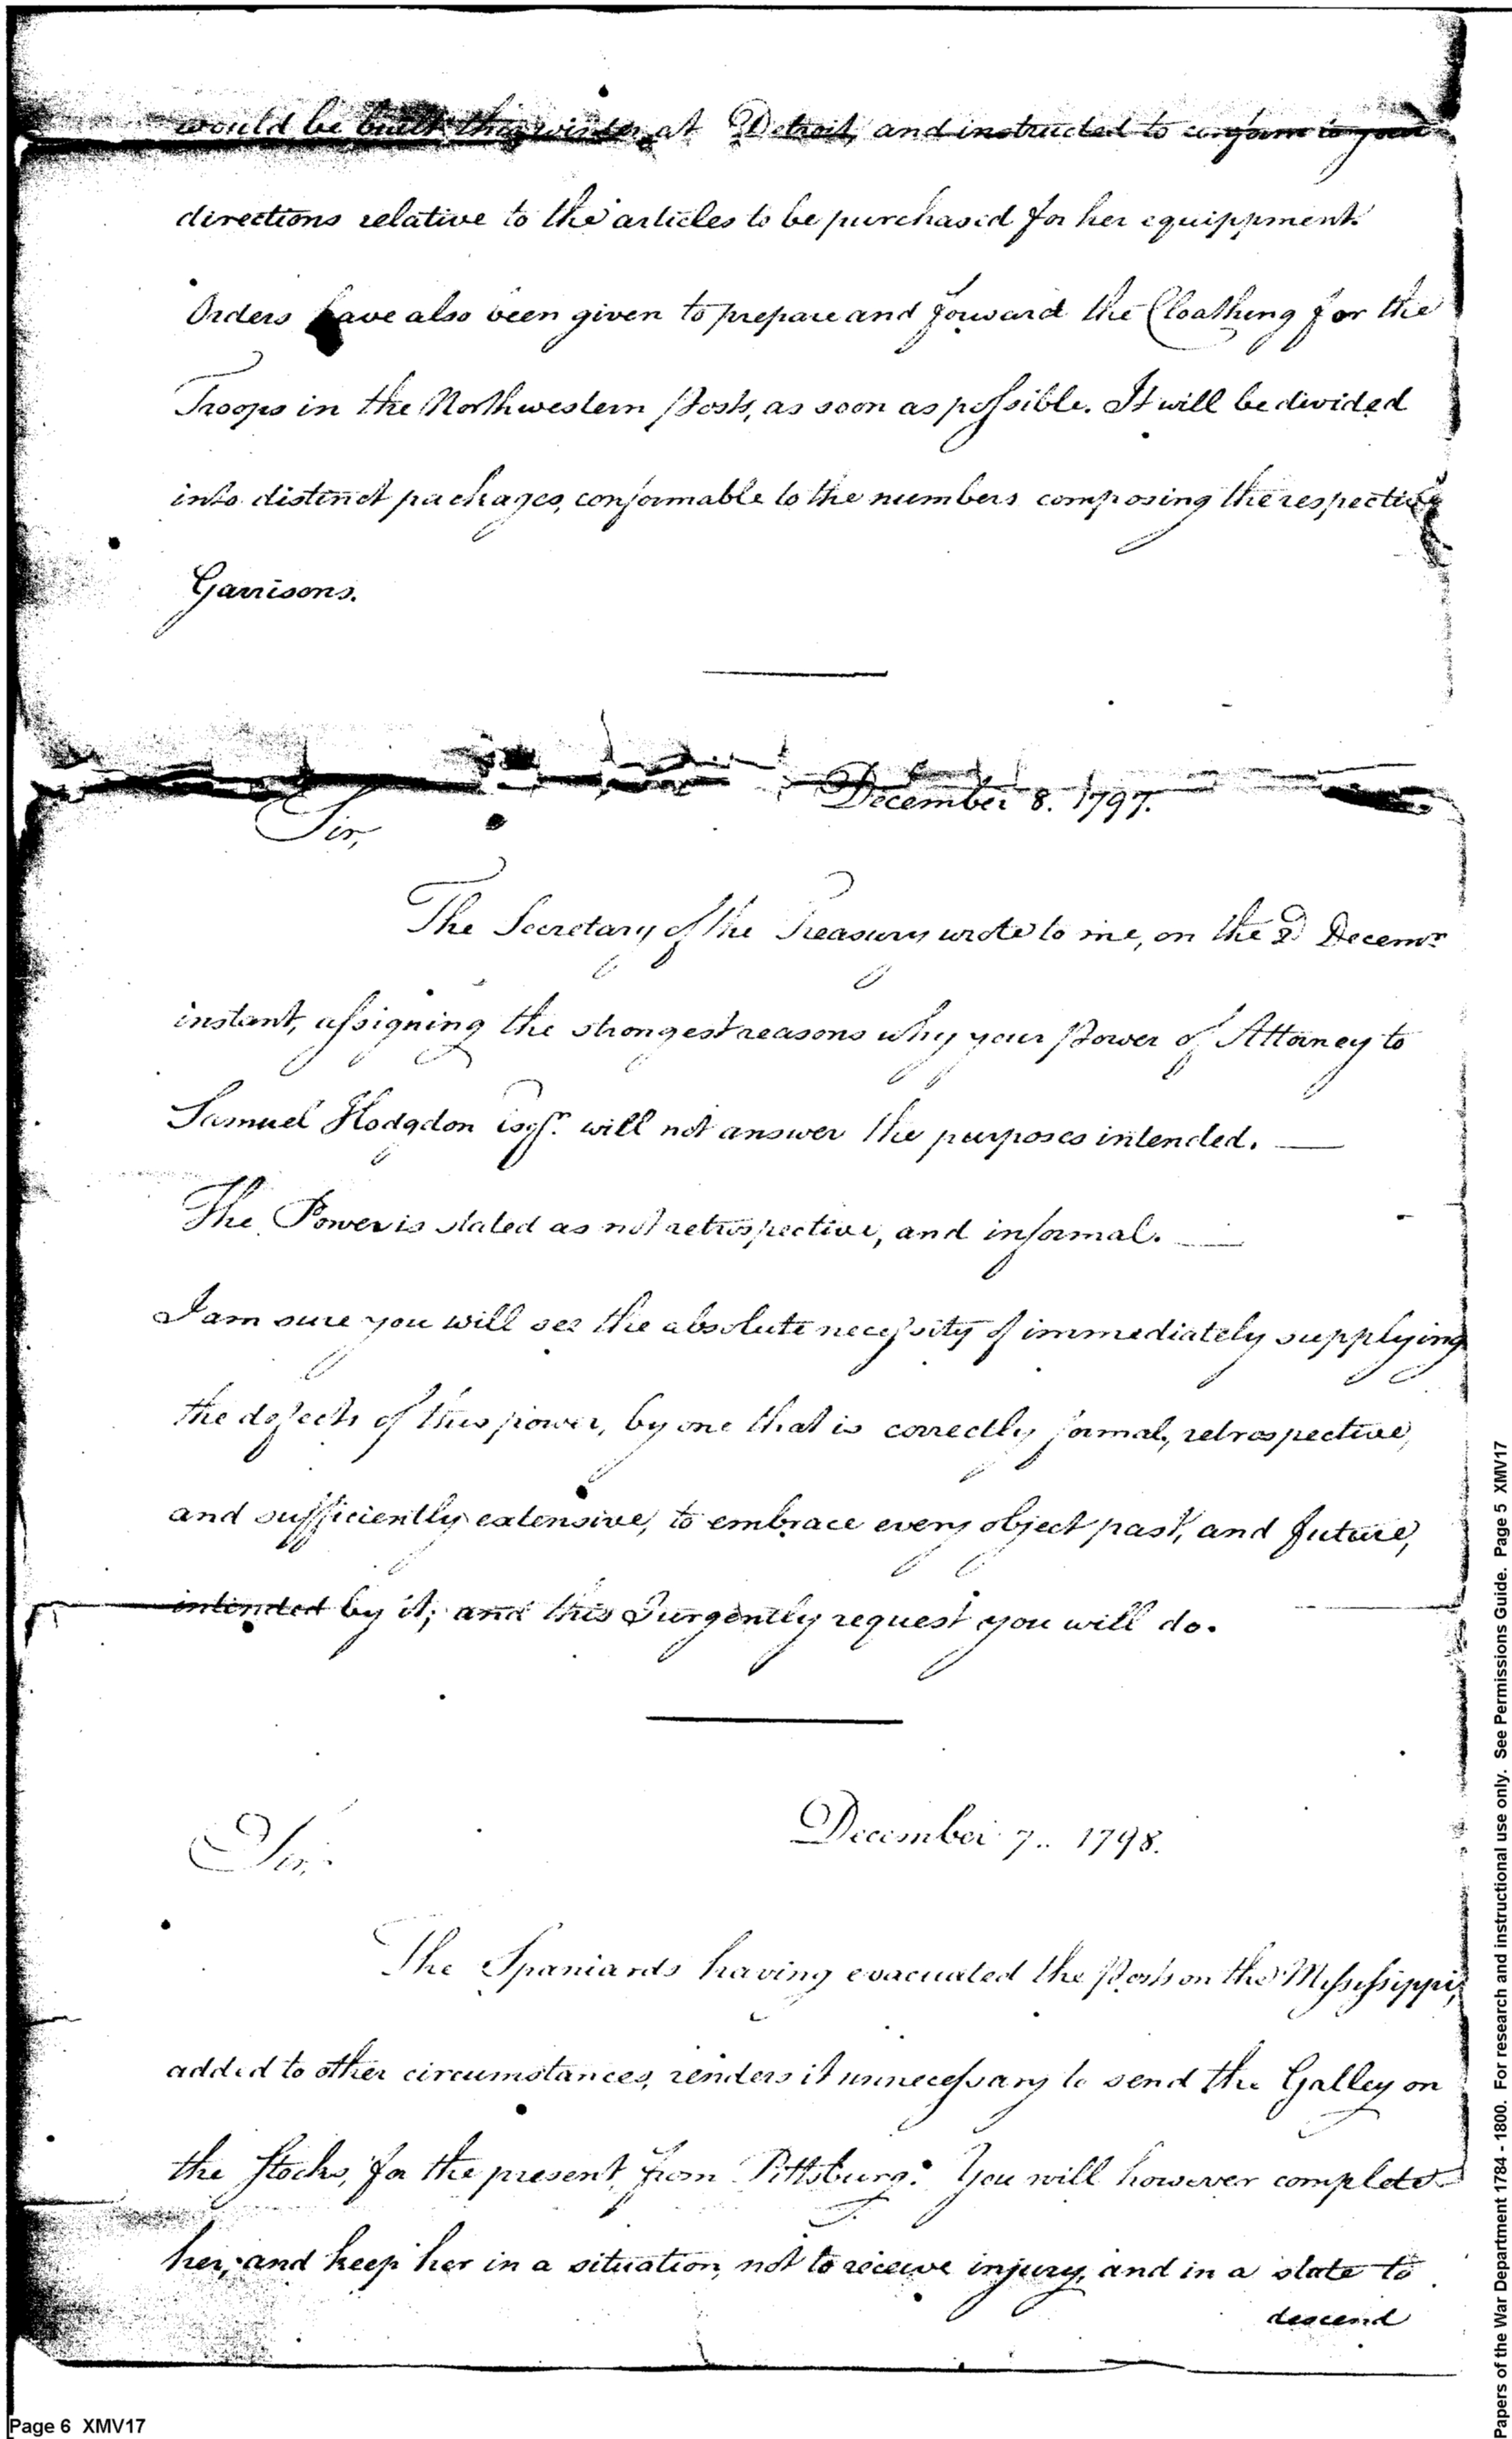 would be built this winter at Detroit, and instructed to conform to your
directions relative to the articles to be purchased for her equippment.
Orders have also been given to prepare and forward the Cloathing for the
Troops in the Northwestern Posts, as soon as possible. It will be divided
into distinct packages, conformable to the numbers composing the respective
Garrisons.
December 8. 1797.
Sir,
The Secretary of the Treasury wrote to me, on the 2d Decemr
instant, assigning the strongest reasons why your Power of Attorney to
Samuel Hodgdon Esqr. will not answer the purposes intended. —
The Power is stated as not retrospective, and informal. —
I am sure you will see the absolute necessity of immediately supplying
the defects of this power, by one that is correctly formal, retrospective,
and sufficiently extensive, to embrace every object past, and future,
intended by it; and this I urgently request you will do.
December 7.. 1798.
Sir,
The Spaniards having evacuated the Posts on the Missisippi,
added to other circumstances, renders it unnecessary to send the Galley on
the Stocks, for the present, from Pittsburg. You will however complete
her, and keep her in a situation, not to receive injury, and in a state to
descend
Page 6 XMV17
Papers of the War Department 1784 - 1800. For research and instructional use only. See Permissions Guide. Page 5 XMV17